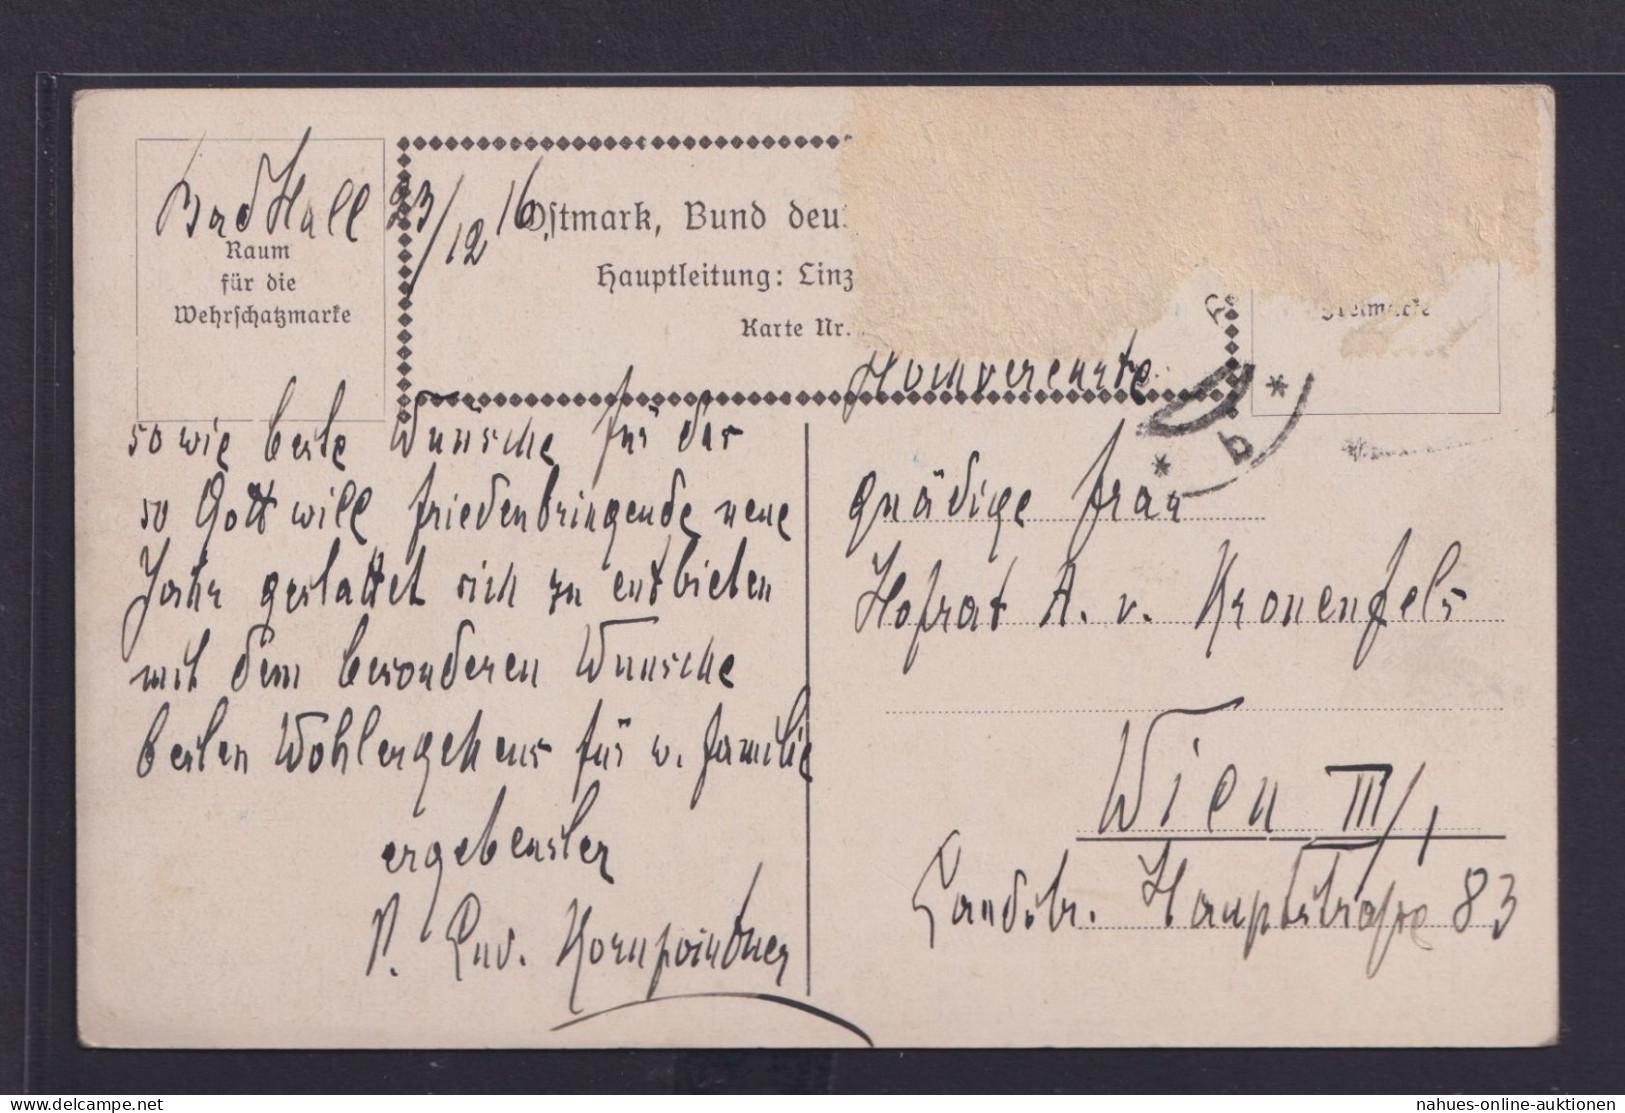 Bad Hall 23/12 16.
Raum
für die
Wehrschatzmarke
Ostmark, Bund deu
Hauptleitung: Linz
Karte Nr.
Hochverehrte
so wie beste Wünsche für das
so Gott will friedenbringende neue
Jahr gestattet sich zu entbieten
mit dem besonderen Wunsche
besten Wohlergehens für w. Familie
ergebenster
P. Kornpointner
b
gnädige Frau
Hofrat A. v. Kronenfels
Wien III/1
Landstr. Hauptstraße 83
nahues-online-auktionen
www.delcampe.net